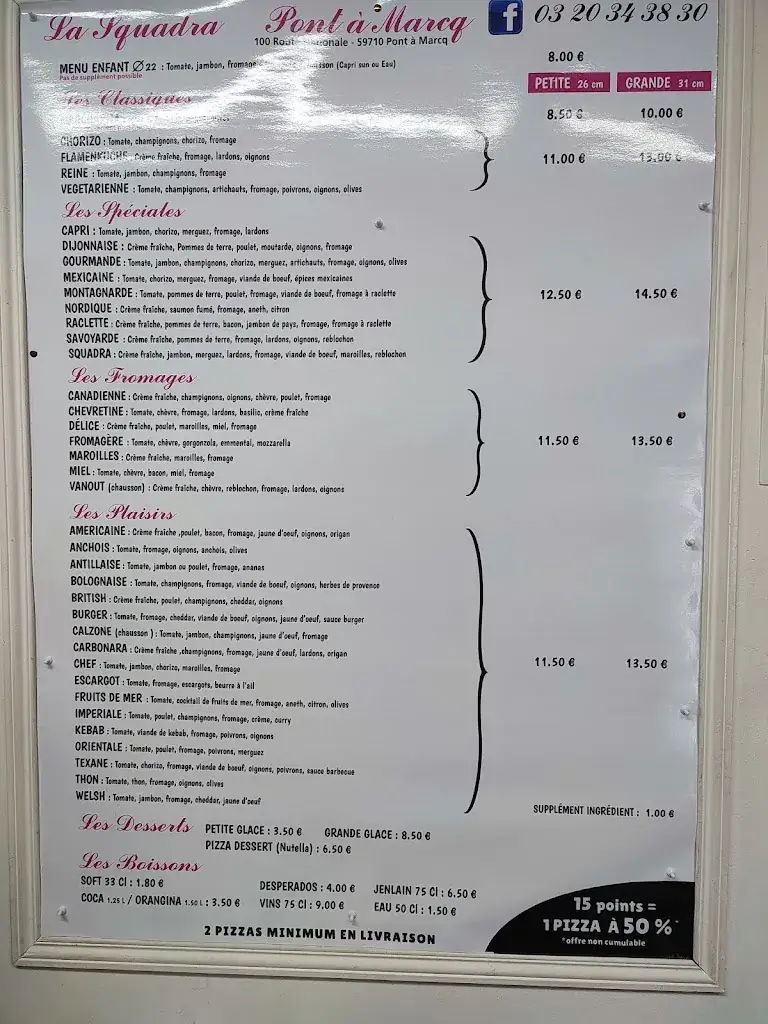 La Squadra Pont à Marcq f 03 20 34 38 30
100 Route Nationale - 59710 Pont à Marcq
MENU ENFANT Ø 22 : Tomate, jambon, fromage (Capri sun ou Eau) 8.00 €
Pas de supplément possible
PETITE 26 cm GRANDE 31 cm
Les Classiques
8.50 € 10.00 €
CHORIZO : Tomate, champignons, chorizo, fromage
FLAMENKUCHE : Crème fraîche, fromage, lardons, oignons
11.00 € 13.00 €
REINE : Tomate, jambon, champignons, fromage
VEGETARIENNE : Tomate, champignons, artichauts, fromage, poivrons, oignons, olives
Les Spéciales
CAPRI : Tomate, jambon, chorizo, merguez, fromage, lardons
DIJONNAISE : Crème fraîche, Pommes de terre, poulet, moutarde, oignons, fromage
GOURMANDE : Tomate, jambon, champignons, chorizo, merguez, artichauts, fromage, oignons, olives
MEXICAINE : Tomate, chorizo, merguez, fromage, viande de boeuf, épices mexicaines
MONTAGNARDE : Tomate, pommes de terre, poulet, fromage, viande de boeuf, fromage à raclette
12.50 € 14.50 €
NORDIQUE : Crème fraîche, saumon fumé, fromage, aneth, citron
RACLETTE : Crème fraîche, pommes de terre, bacon, jambon de pays, fromage, fromage à raclette
SAVOYARDE : Crème fraîche, pommes de terre, fromage, lardons, oignons, reblochon
SQUADRA : Crème fraîche, jambon, merguez, lardons, fromage, viande de boeuf, maroilles, reblochon
Les Fromages
CANADIENNE : Crème fraîche, champignons, oignons, chèvre, poulet, fromage
CHEVRETINE : Tomate, chèvre, fromage, lardons, basilic, crème fraîche
DÉLICE : Crème fraîche, poulet, maroilles, miel, fromage
FROMAGÈRE : Tomate, chèvre, gorgonzola, emmental, mozzarella
11.50 € 13.50 €
MAROILLES : Crème fraîche, maroilles, fromage
MIEL : Tomate, chèvre, bacon, miel, fromage
VANOUT (chausson) : Crème fraîche, chèvre, reblochon, fromage, lardons, oignons
Les Plaisirs
AMERICAINE : Crème fraîche ,poulet, bacon, fromage, jaune d'oeuf, oignons, origan
ANCHOIS : Tomate, fromage, oignons, anchois, olives
ANTILLAISE : Tomate, jambon ou poulet, fromage, ananas
BOLOGNAISE : Tomate, champignons, fromage, viande de boeuf, oignons, herbes de provence
BRITISH : Crème fraîche, poulet, champignons, cheddar, oignons
BURGER : Tomate, fromage, cheddar, viande de boeuf, oignons, jaune d'oeuf, sauce burger
CALZONE (chausson ) : Tomate, jambon, champignons, jaune d'oeuf, fromage
CARBONARA : Crème fraîche ,champignons, fromage, jaune d'oeuf, lardons, origan
CHEF : Tomate, jambon, chorizo, maroilles, fromage
11.50 € 13.50 €
ESCARGOT : Tomate, fromage, escargots, beurre à l'ail
FRUITS DE MER : Tomate, cocktail de fruits de mer, fromage, aneth, citron, olives
IMPERIALE : Tomate, poulet, champignons, fromage, crème, curry
KEBAB : Tomate, viande de kebab, fromage, poivrons, oignons
ORIENTALE : Tomate, poulet, fromage, poivrons, merguez
TEXANE : Tomate, chorizo, fromage, viande de boeuf, oignons, poivrons, sauce barbecue
THON : Tomate, thon, fromage, oignons, olives
WELSH : Tomate, jambon, fromage, cheddar, jaune d'oeuf
SUPPLÉMENT INGRÉDIENT : 1.00 €
Les Desserts PETITE GLACE : 3.50 € GRANDE GLACE : 8.50 €
PIZZA DESSERT (Nutella) : 6.50 €
Les Boissons
SOFT 33 Cl : 1.80 € DESPERADOS : 4.00 € JENLAIN 75 Cl : 6.50 €
COCA 1.25 L / ORANGINA 1.50 L : 3.50 € VINS 75 Cl : 9.00 € EAU 50 Cl : 1.50 €
2 PIZZAS MINIMUM EN LIVRAISON
15 points =
1 PIZZA À 50 %*
*offre non cumulable